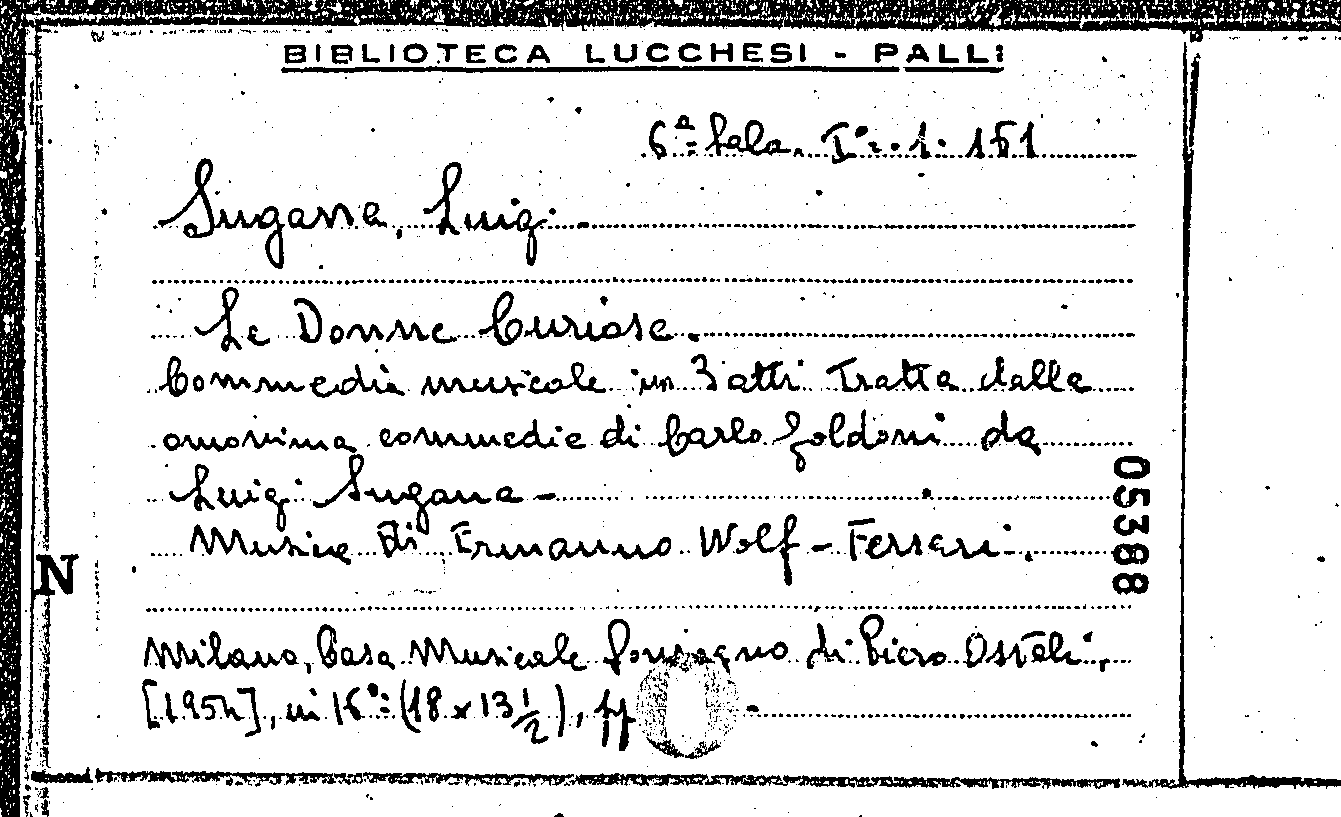 BIBLIOTECA LUCCHESI - PALLI
6ª Sala. Iº. 1. 161
Sugana, Luigi. -
Le Donne Curiose.
Commedia musicale in 3 atti Tratta dalla
omonima commedia di Carlo Goldoni da
Luigi Sugana -
Musica di Ermanno Wolf - Ferrari.
05388
N
Milano, Casa Musicale Sonzogno di Piero Ostali,
in 16º: (18 x 13 1/2), pp